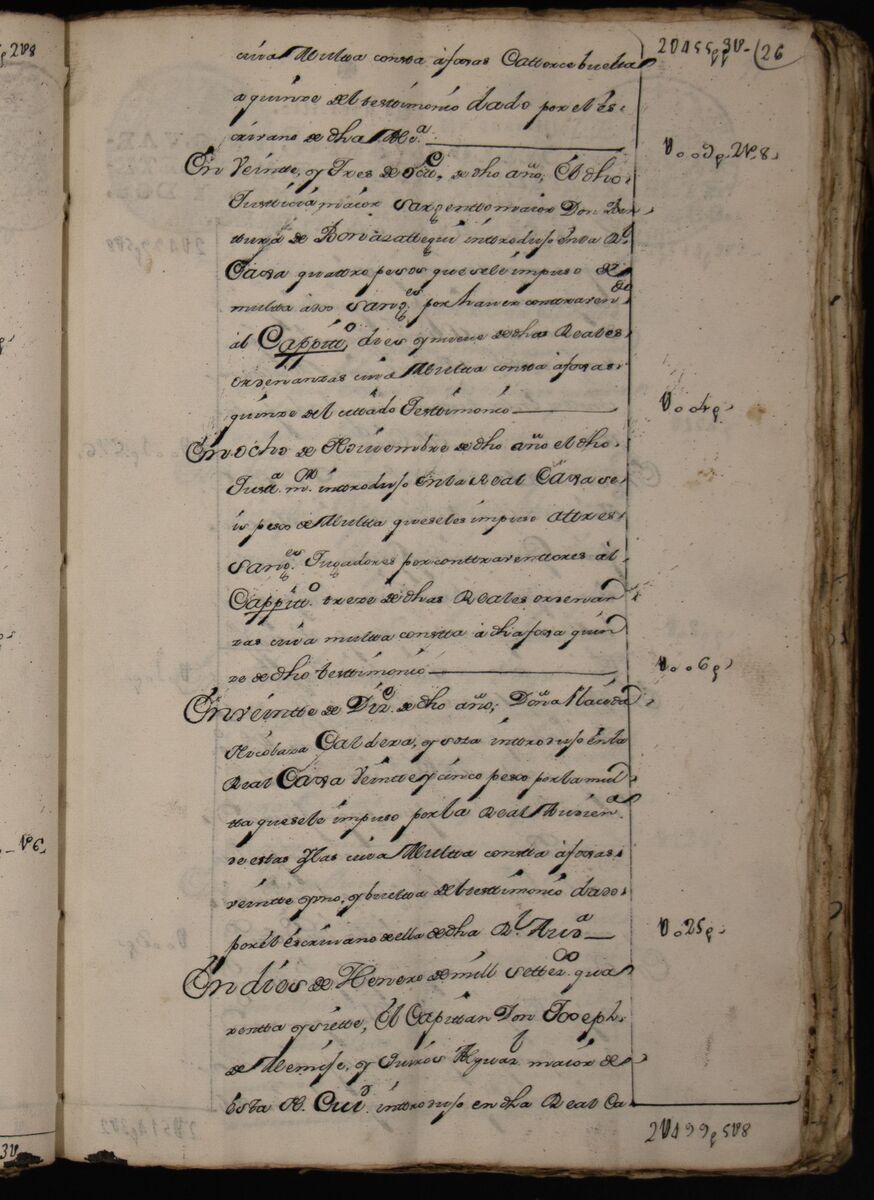 2U455p3U- (26
cuia Multta constta à foxas Cattorce buelta
a quinze del testtimonio dado por el es-
crivano de dha Rl. Aa.
U..9p.2U8.
En Veintte, y Tres de Oct.e de dho año, El dho.
Justticia maior Sargentto maior Don Ben
ttura de introduxo en la Rl.
Caxa quattro pesos que se le impuso de
multta à dos Sang.es por haver conttraven.do
al Cappitt.o dies y nueve de dhas Reales
ordenanzas cuia Multta constta à foxas
quinze del cittado Testtimonio
U..4p.
En ocho de Noviembre de dho año el dho.
Justt.a m.or inttroduxo en la Real Caxa se
is pesos de Multta que se les impuso a ttres
Sang.es Jugadores por conttraventtores àl
Cappitt.o treze de dhas Reales ordenan
zas cuia multta constta à dha foxa quin
ze de dho testtimonio
U..6p.
En veintte de Diz.e de dho año, Doña
Caldera, y Sosa inttroduxo en la
Real Caxa Veintte y cinco pesos por la mul
tta que se le impuso por la Real Audien.a
de estas Yslas cuia Multta constta à foxas
veintte y uno, y buelta de testtimonio dado
por èl Escrivano de ella de dha Rl. Aud.a
U..25p.
En dies de Henero de mill settez.os qua
rentta y siette, El Capittan Don Joseph
de y Quiros Alguaz.l maior de
esta N. Ciud. inttroduxo en dha Real Ca
2U499p5U8